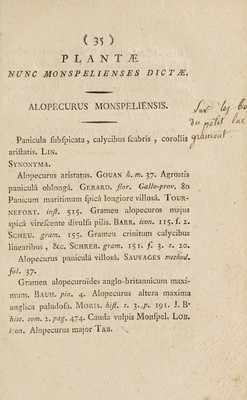 ( 35 )
PLANTÆ
NUNC MONSPELIENSES DICTÆ.
ALOPECURUS MONSPELIËNSIS.
Sur les
du petit lac
gramont
Panicula ſubſpicata, calycibus ſcabris, corollis
ariſtatis. LIN.
SYNONYMA.
Alopecurus ariſtatus. GOUAN h. m. 37. Agroſtis
paniculâ oblongâ. GERARD. flor. Gallo-prov. 80
Panicum maritimum ſpicâ longiore villosâ. TOUR-
NEFORT. inſt. 515. Gramen alopecuros majus
ſpicâ vireſcente divulſis pilis. BARR. icon. 115. f. 2.
SCHEU. gram. 155. Gramen crinitum calycibus
linearibus, &c. SCHREB. gram. 151. f. 3. t. 20.
Alopecurus paniculâ villosâ. SAUVAGES method.
fol. 37.
Gramen alopecuroïdes anglo-britannicum maxi-
mum. BAUH. pin. 4. Alopecurus altera maxima
anglica paludoſa. MORIS. hiſt. t. 3. p. 191. J. B.
hist. tom. 2. pag. 474. Cauda vulpis Monſpel. LOB.
icon. Alopecurus major TAB.